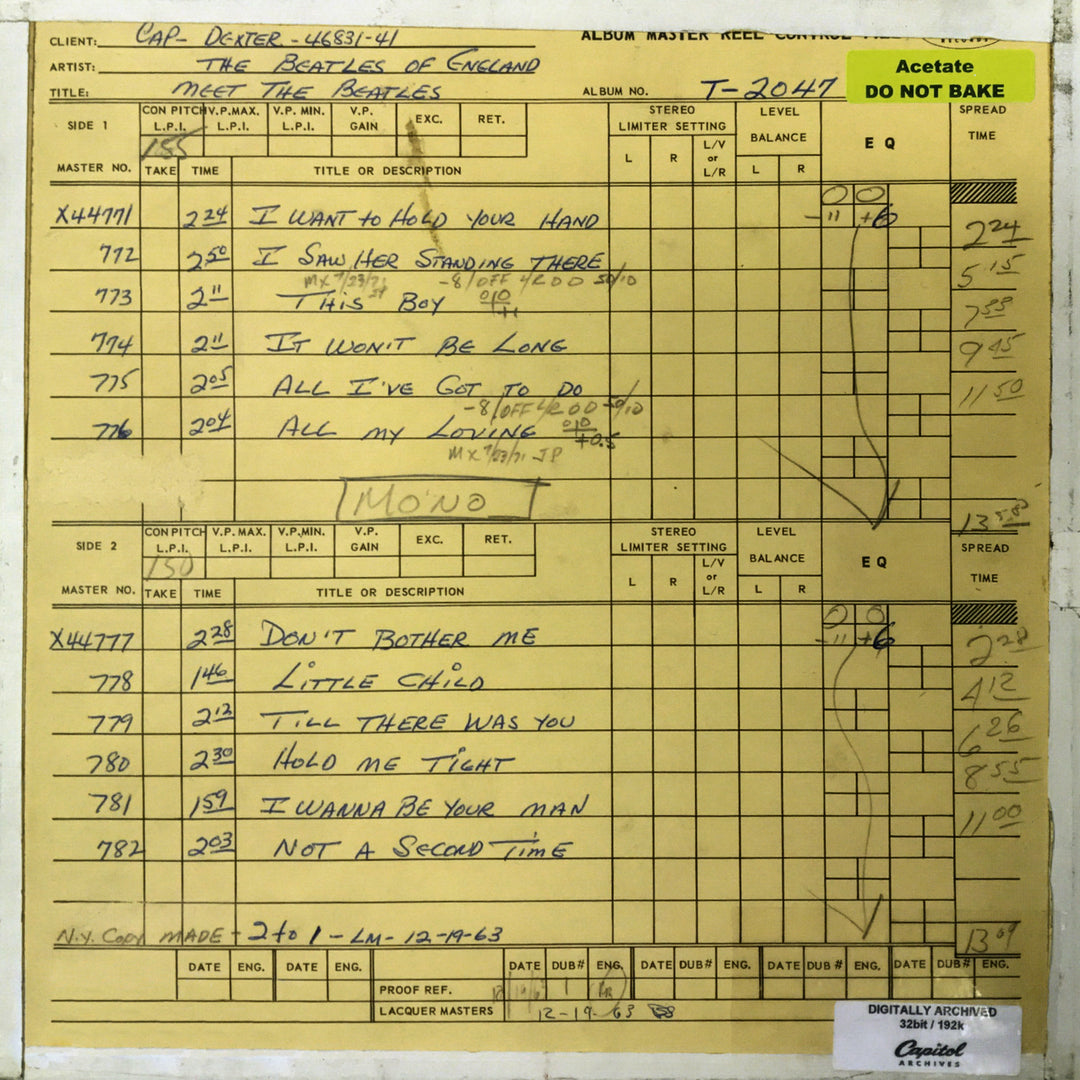 CLIENT: CAP- DEXTER - 46831-41
ALBUM MASTER REEL CONTROL
ARTIST: THE BEATLES OF ENGLAND
TITLE: MEET THE BEATLES
ALBUM NO. T-2047
Acetate
DO NOT BAKE
SIDE 1
CON PITCH L.P.I. V.P. MAX. L.P.I. V.P. MIN. L.P.I. V.P. GAIN EXC. RET.
155
STEREO LIMITER SETTING L R L/V or L/R
LEVEL BALANCE L R
E Q
SPREAD TIME
MASTER NO. TAKE TIME TITLE OR DESCRIPTION
0 0
X44771 2 24 I WANT to HOLD YOUR HAND -11 +6 2 24
772 2 50 I SAW HER STANDING THERE 5 15
MX 7/23/71 -8/OFF 4/200 50/10
773 2 11 THIS BOY 0|0 +1
774 2 11 IT WON'T BE LONG 9 45
775 2 05 ALL I'VE GOT TO DO 11 50
-8/OFF 4/200 50/10
776 2 04 ALL MY LOVING 0|0 +0.5
MX 7/23/71 JP
MONO
13 58
SIDE 2
CON PITCH L.P.I. V.P. MAX. L.P.I. V.P. MIN. L.P.I. V.P. GAIN EXC. RET.
150
STEREO LIMITER SETTING L R L/V or L/R
LEVEL BALANCE L R
E Q
SPREAD TIME
MASTER NO. TAKE TIME TITLE OR DESCRIPTION
0 0
X44777 2 28 DON'T BOTHER ME -11 +6 2 28
778 1 46 LITTLE CHILD 4 12
779 2 12 TILL THERE WAS YOU 6 26
780 2 30 HOLD ME TIGHT 8 55
781 1 59 I WANNA BE YOUR MAN 11 00
782 2 03 NOT A SECOND TIME
N.Y. COPY MADE - 2 to 1 - LM - 12-19-63
13 09
DATE ENG. DATE ENG. DATE DUB# ENG. DATE DUB# ENG. DATE DUB# ENG. DATE DUB# ENG.
PROOF REF. 1
LACQUER MASTERS 12-19-63
DIGITALLY ARCHIVED
32bit / 192k
Capitol
ARCHIVES